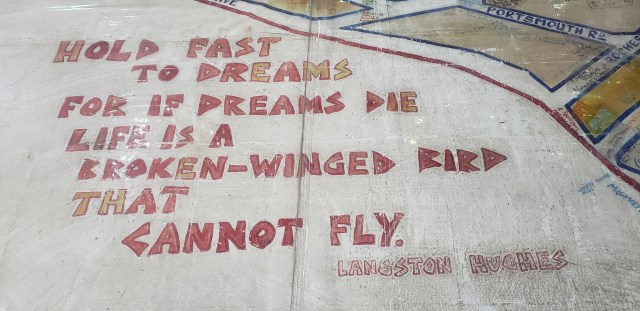 PORTSMOUTH RD
HOLD FAST
TO DREAMS
FOR IF DREAMS DIE
LIFE IS A
BROKEN-WINGED BIRD
THAT
CANNOT FLY.
LANGSTON HUGHES